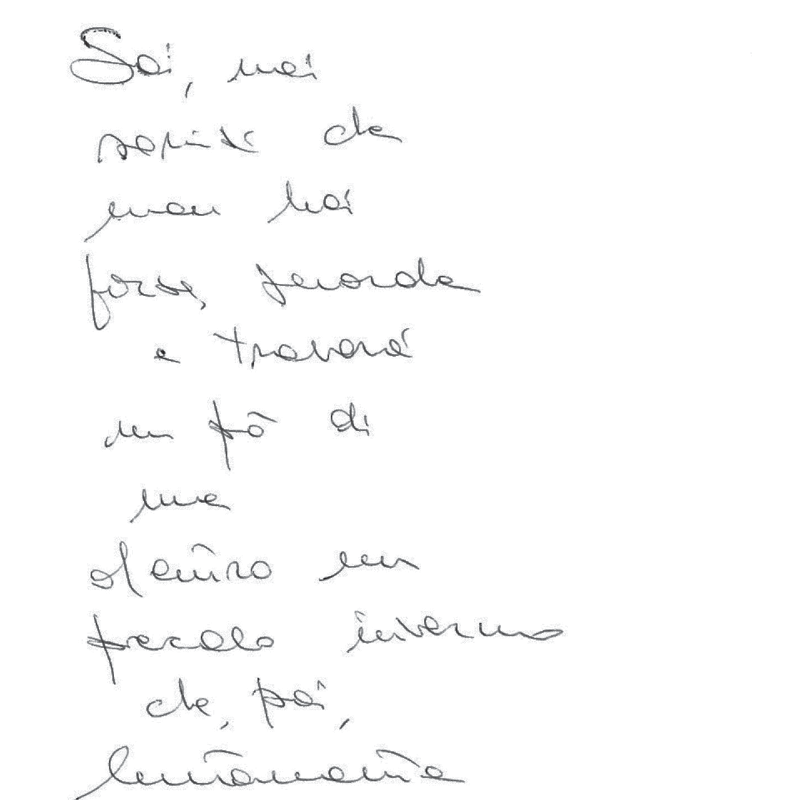 Sai, mai
sentiti che
non hai
forse, guarda
e troverai
un pò di
me
dentro un
piccolo inverno
che, poi,
lentamente